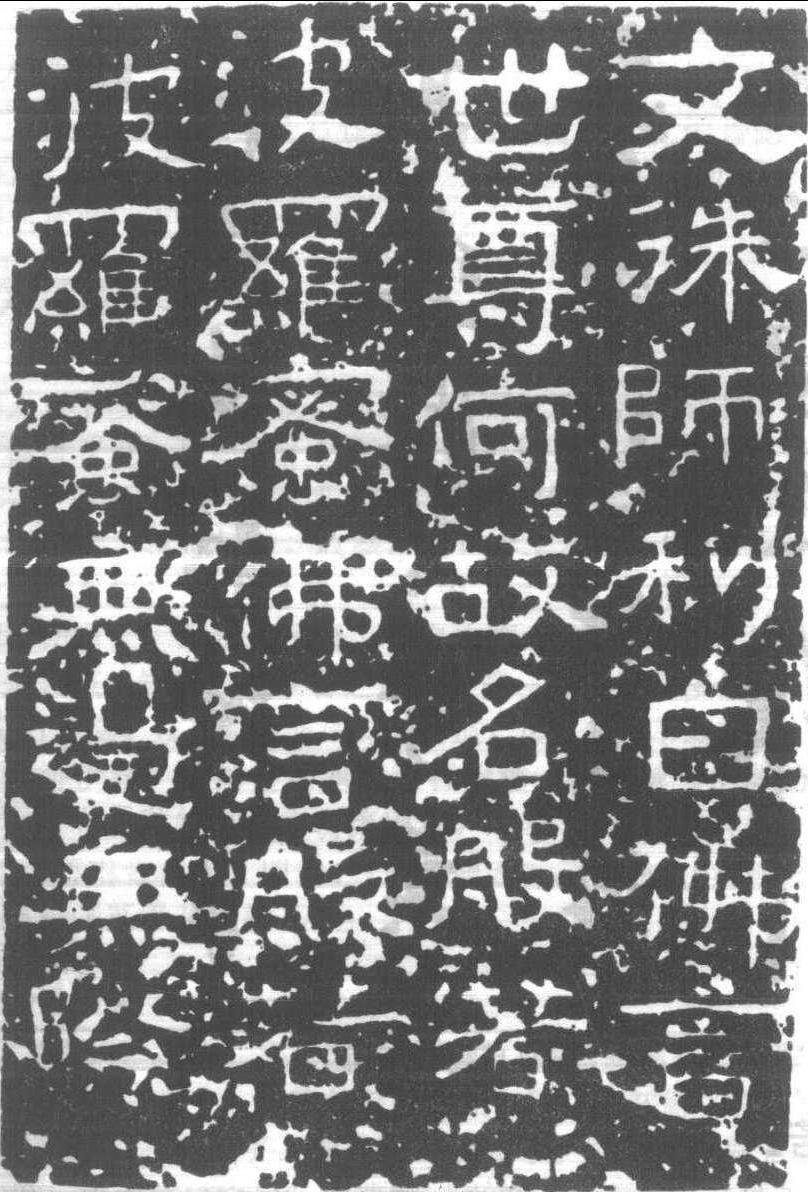 文殊師利白佛言
世尊何故名般若
波羅蜜佛言般若
波羅蜜無邊無際